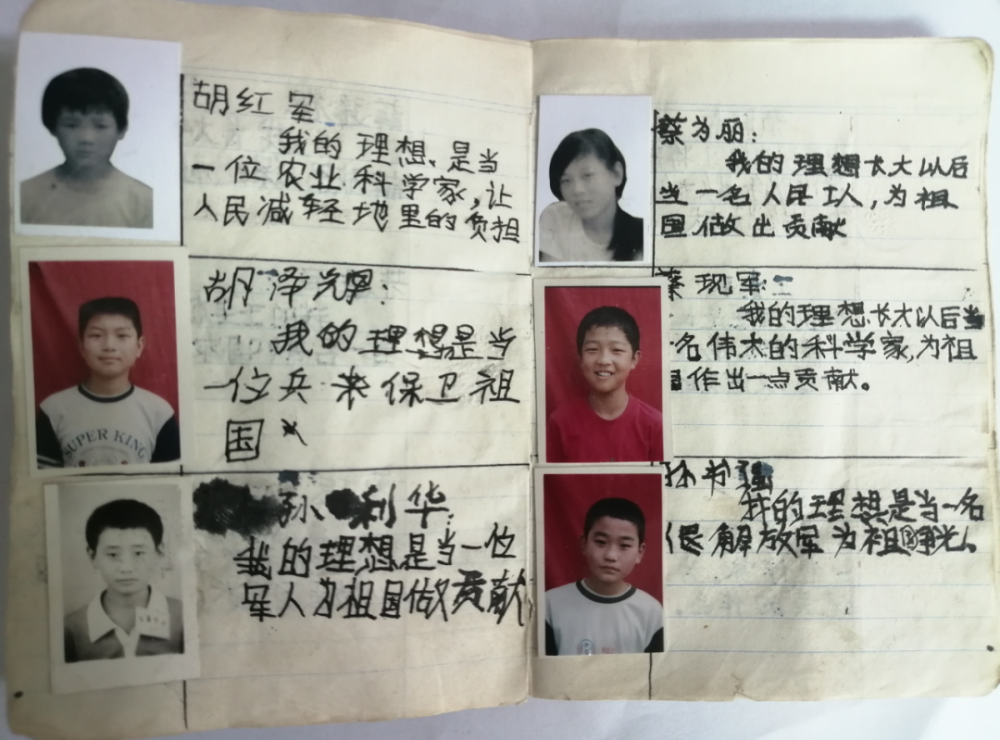 胡红军
我的理想、是当
一位农业科学家,让
人民减轻地里的负担
胡泽光:
我的理想是当
一位兵来保卫祖
国
SUPER KING
孙利华:
我的理想是当一位
军人为祖国做贡献
蔡为丽:
我的理想长大以后
当一名人民工人,为祖
国做出贡献
蔡现军:
我的理想长大以后当
名伟大的科学家,为祖
国作出一点贡献。
孙书强
我的理想是当一名
人民解放军为祖国争光。